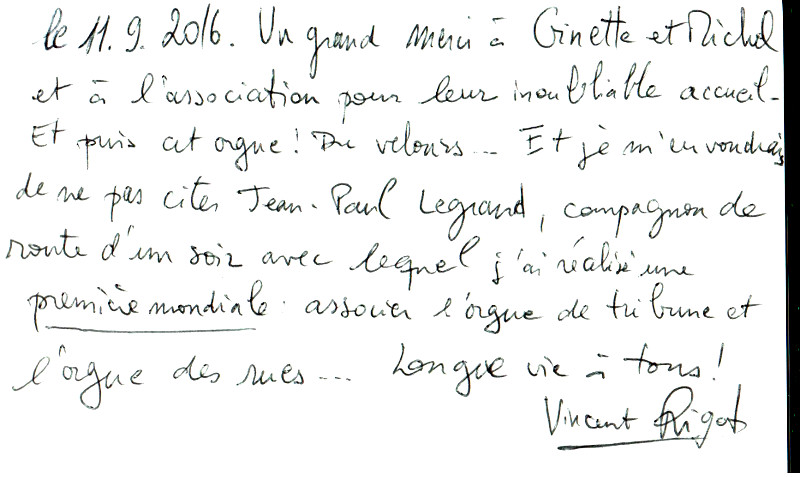 le 11.9.2016. Un grand merci à Ginette et Michel
et à l'association pour leur inoubliable accueil.
Et puis cet orgue! Du velours... Et je m'en voudrais
de ne pas citer Jean-Paul Legrand, compagnon de
route d'un soir avec lequel j'ai réalisé une
première mondiale: associer l'orgue de tribune et
l'orgue des rues... Longue vie à tous!
Vincent Rigot